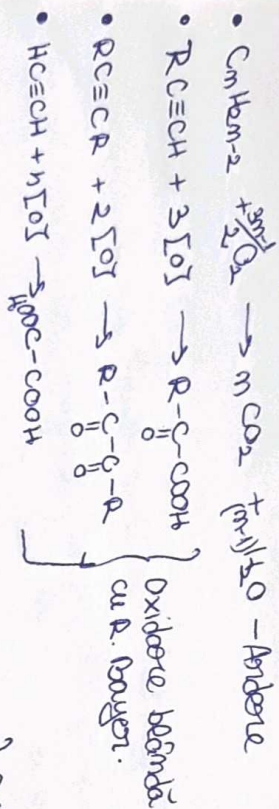 • CnH2n-2 + 3n-1/2 O2 → nCO2 + (n-1)H2O - Ardere
• RC≡CH + 3[O] → R-C(=O)-COOH
• RC≡CR + 2[O] → R-C(=O)-C(=O)-R
• HC≡CH + 4[O] → HOOC-COOH
Oxidare blândă
cu R. Bayer.